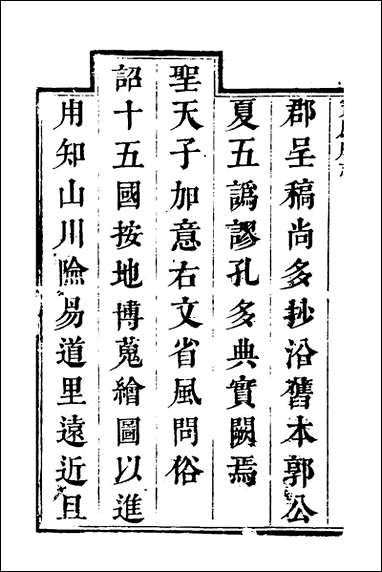 郡呈稿尚多抄沿舊本郭公
夏五譌謬孔多典實闕焉
聖天子加意右文省風問俗
詔十五國按地博蒐繪圖以進
用知山川險易道里遠近且